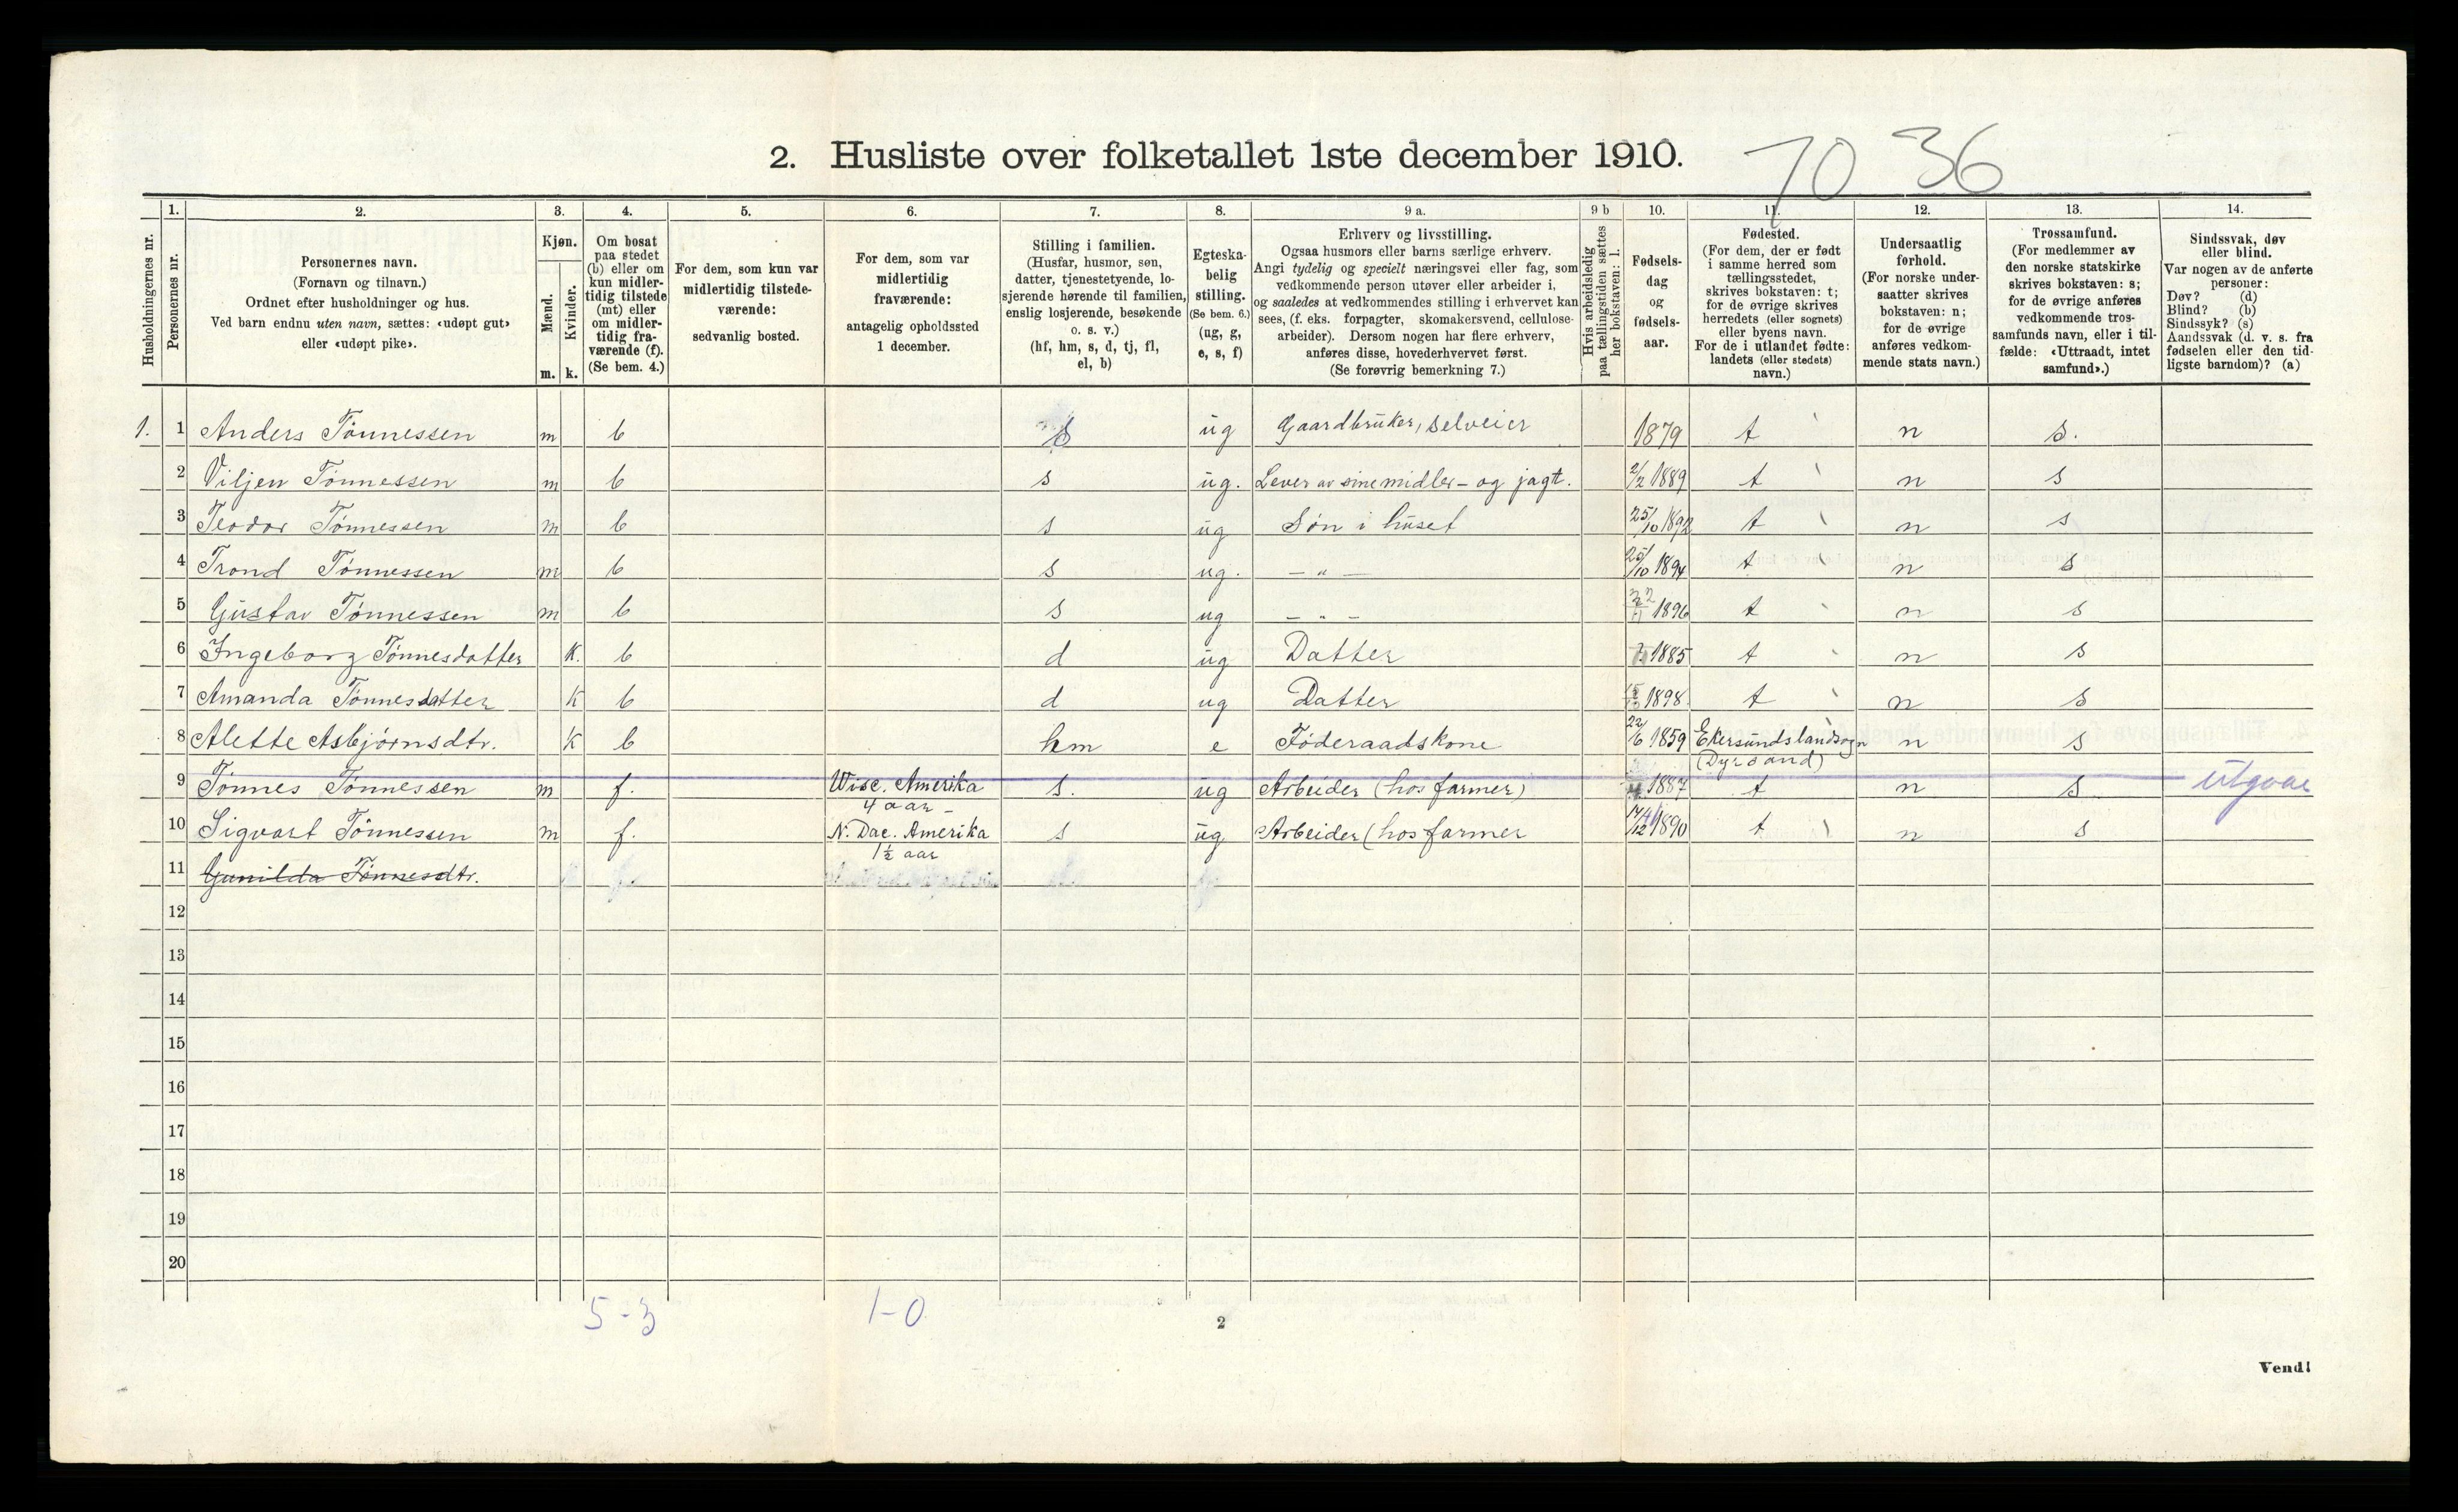 2. Husliste over folketallet 1ste december 1910.
70 36
Husholdningernes nr.
1.
Personernes nr.
2.
Personernes navn.
(Fornavn og tilnavn.)
Ordnet efter husholdninger og hus.
Ved barn endnu uten navn, sættes: «udøpt gut»
eller «udøpt pike».
3.
Kjøn.
Mænd.
Kvinder.
m. k.
4.
Om bosat
paa stedet
(b) eller om
kun midler-
tidig tilstede
(mt) eller
om midler-
tidig fra-
værende (f).
(Se bem. 4.)
5.
For dem, som kun var
midlertidig tilstede-
værende:
sedvanlig bosted.
6.
For dem, som var
midlertidig
fraværende:
antagelig opholdssted
1 december.
7.
Stilling i familien.
(Husfar, husmor, søn,
datter, tjenestetyende, lo-
sjerende hørende til familien,
enslig losjerende, besøkende
o. s. v.)
(hf, hm, s, d, tj, fl,
el, b)
8.
Egteska-
belig
stilling.
(Se bem. 6.)
(ug, g,
e, s, f)
9 a.
Erhverv og livsstilling.
Ogsaa husmors eller barns særlige erhverv.
Angi tydelig og specielt næringsvei eller fag, som
vedkommende person utøver eller arbeider i,
og saaledes at vedkommendes stilling i erhvervet kan
sees, (f. eks. forpagter, skomakersvend, cellulose-
arbeider). Dersom nogen har flere erhverv,
anføres disse, hovederhvervet først.
(Se forøvrig bemerkning 7.)
9 b
Hvis arbeidsledig
paa tællingstiden sættes
her bokstaven: l.
10.
Fødsels-
dag
og
fødsels-
aar.
11.
Fødested.
(For dem, der er født
i samme herred som
tællingsstedet,
skrives bokstaven: t;
for de øvrige skrives
herredets (eller sognets)
eller byens navn.
For de i utlandet fødte:
landets (eller stedets)
navn.)
12.
Undersaatlig
forhold.
(For norske under-
saatter skrives
bokstaven: n;
for de øvrige
anføres vedkom-
mende stats navn.)
13.
Trossamfund.
(For medlemmer av
den norske statskirke
skrives bokstaven: s;
for de øvrige anføres
vedkommende tros-
samfunds navn, eller i til-
fælde: «Uttraadt, intet
samfund».)
14.
Sindssvak, døv
eller blind.
Var nogen av de anførte
personer:
Døv? (d)
Blind? (b)
Sindssyk? (s)
Aandssvak (d. v. s. fra
fødselen eller den tid-
ligste barndom)? (a)
1. 1 Anders Tønnessen m b s ug Gaardbruker, selveier 1879 t n s.
2 Viljen Tønnessen m b s ug. Lever av sine midler - og jagt. 2/2 1889 t n s
3 Teodor Tønnessen m b s ug Søn i huset 25/10 1892 t n s
4 Trond Tønnessen m b s ug. — " — 25/10 1894 t n s
5 Gustav Tønnessen m b s ug — " — 1896 t n s
6 Ingeborg Tønnesdatter k. b d ug Datter 1885 t n s
7 Amanda Tønnesdatter k b d ug Datter 1898 t n s
8 Alette Asbjørnsdtr. k b hm e Føderaadskone 22/6 1859 Ekersunds landsogn n s
(Dyrsand)
9 Tønnes Tønnessen m f. Wisc. Amerika s. ug Arbeider (hos farmer) 1887 t n s utgaar
4 aar -
10 Sigvart Tønnessen m f. N. Dac. Amerika s ug Arbeider (hos farmer 14/12 1890 t n s
1½ aar
11 Gunilda Tønnesdtr.
12
13
14
15
16
17
18
19
20
5 - 3 1 - 0
2
Vend!